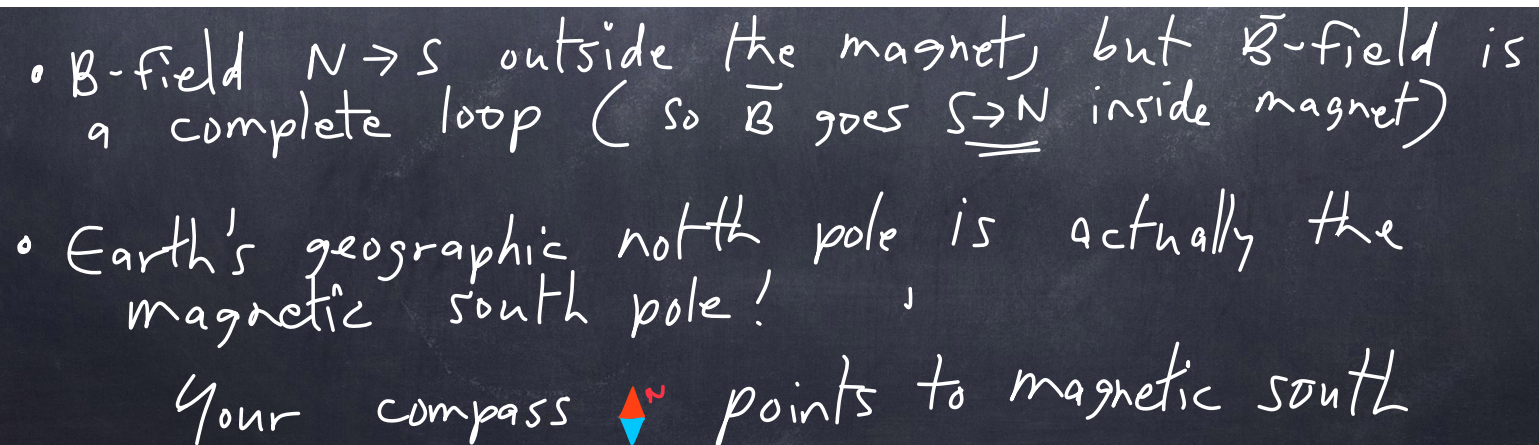 • B-field N → S outside the magnet, but B̄-field is
a complete loop ( so B̄ goes S→N inside magnet)
• Earth's geographic notth pole is actually the
magnetic south pole!
Your compass N points to magnetic south